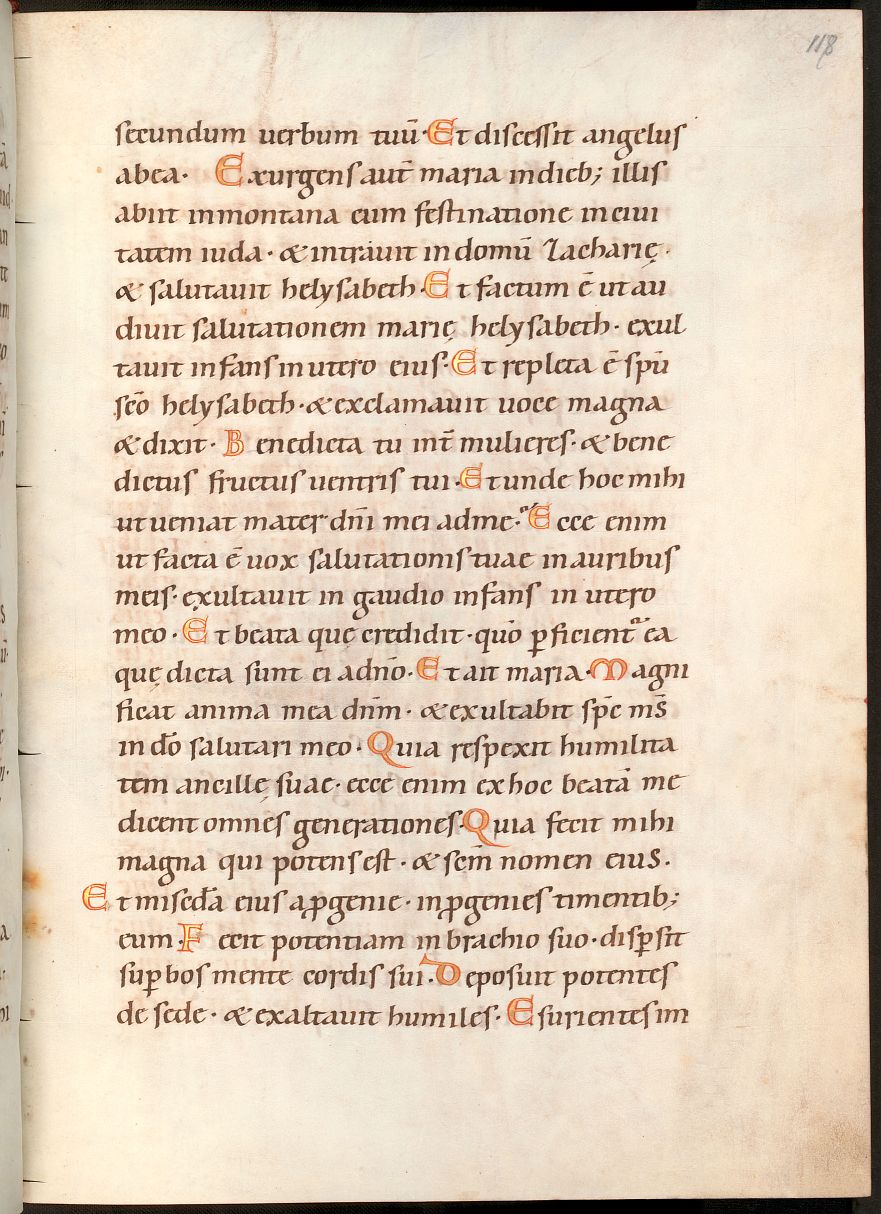 118
secundum uerbum tuū· Et discessit angelus
abea· Exurgens aut̄ maria indieb; illis
abiit inmontana cum festinatione inciui
tatem iuda· & intrauit in domū Zacharię·
& salutauit helysabeth· Et factum ē ut au
diuit salutationem marię helysabeth· exul
tauit infans inutero eius· Et repleta ē spū
sc̄o helysabeth· & exclamauit uoce magna
& dixit· Benedicta tu int̄ mulieres· & bene
dictus fructus uentris tui· Et unde hoc mihi
ut ueniat mater dn̄i mei adme· Ecce enim
ut facta ē uox salutationis tuae inauribus
meis· exultauit in gaudio infans in utero
meo· Et beata quę credidit· qūo ꝑficient᷑ ea
quę dicta sunt ei adn̄o· Et ait maria· Magni
ficat anima mea dn̄m· & exultabit sp̄c m̄s
in do̅ salutari meo· Quia respexit humilita
tem ancillę suae· ecce enim exhoc beatā me
dicent omnes generationes· Quia fecit mihi
magna qui potens est· & scm̄ nomen eius·
Et miscd̄a eius aꝓgenie· inꝓgenies timentib;
eum· Fecit potentiam inbrachio suo· disꝑsit
suꝑbos mente cordis sui· Deposuit potentes
de sede· & exaltauit humiles· Esurientes im